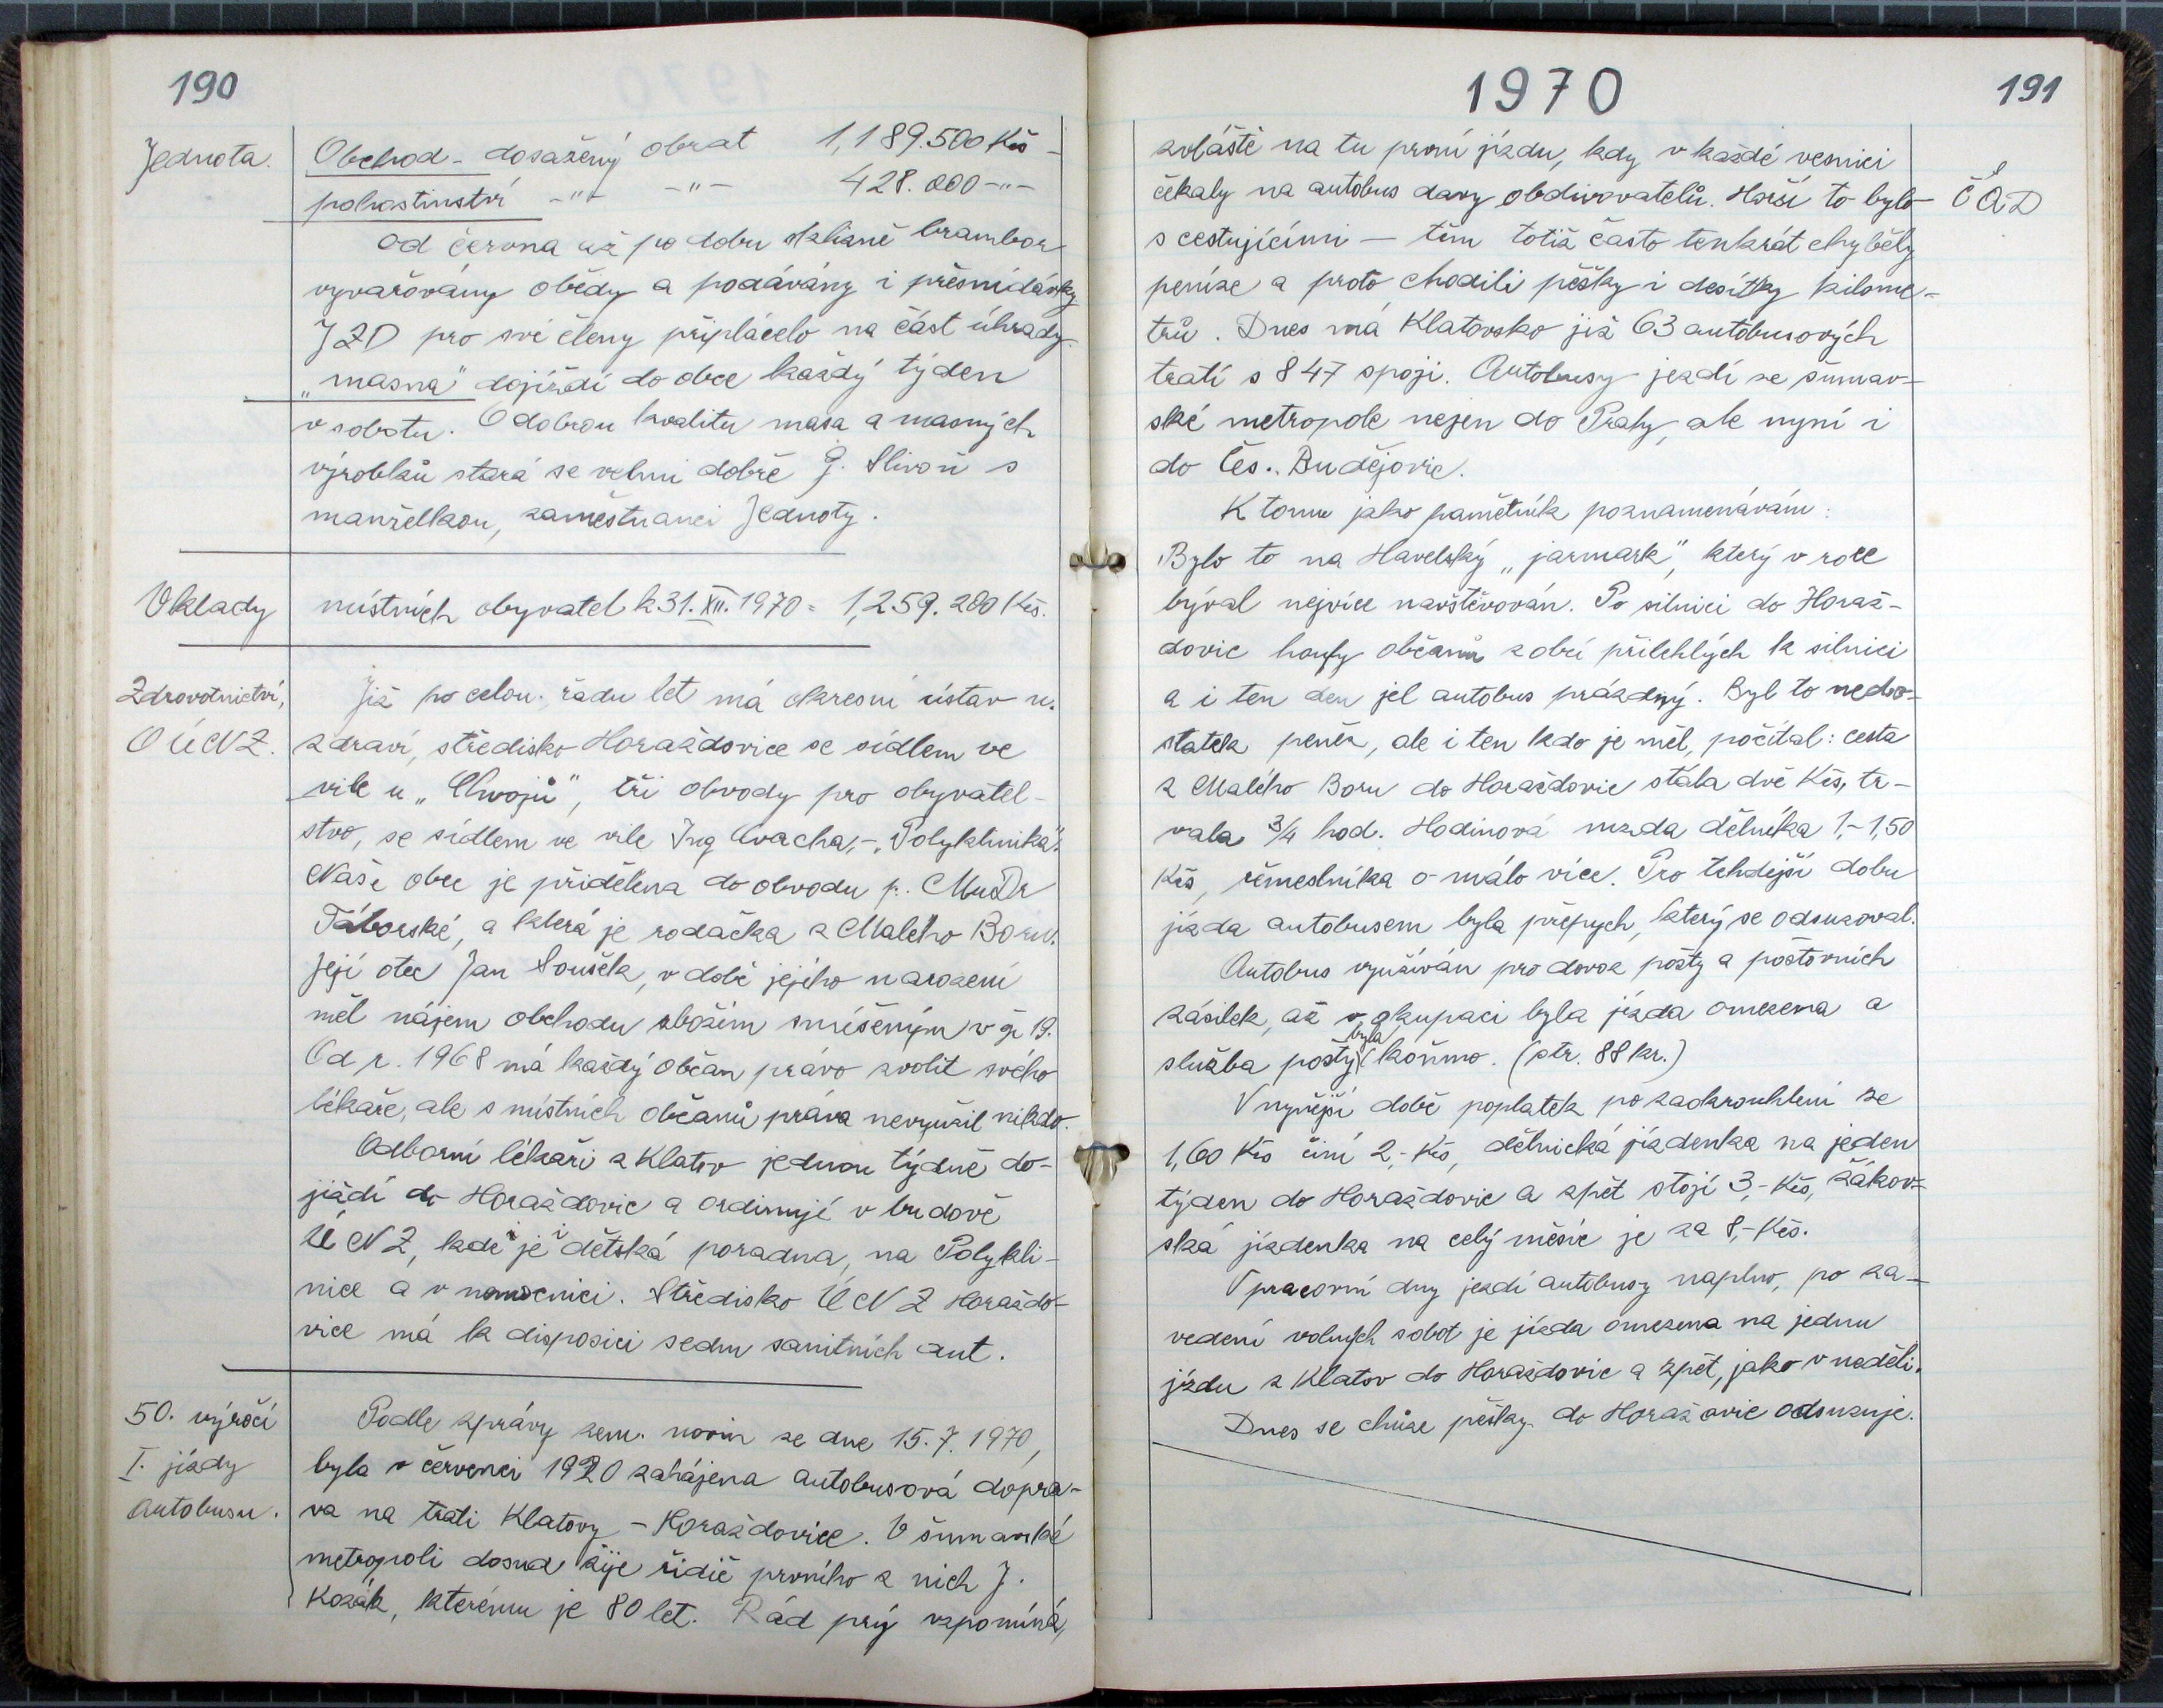 190
Jednota. Obchod - dosažený obrat 1,189.500 Kčs -
pohostinství -"- -"- 428.000 -"-
od června až po dobu sklizně brambor
vyvařovány obědy a podávány i přesnídávky
JZD pro své členy připlácelo na část úhrady.
„masna" dojíždí do obce každý týden
v sobotu. O dobrou kvalitu masa a masných
výrobků stará se velmi dobře J. Slivoň s
manželkou, zaměstnanci Jednoty.
Vklady místních obyvatel k 31. XII. 1970 = 1,259.280 Kčs.
Zdravotnictví, Již po celou řadu let má okresní ústav n.
OÚNZ. zdraví, středisko Horažďovice se sídlem ve
vile u „Chvojů", tři obvody pro obyvatel-
stvo, se sídlem ve vile Ing Cvacha, - „Poliklinika".
Naše obec je přidělena do obvodu p. MuDr
Táborské, a která je rodačka z Malého Boru.
Její otec Jan Souček, v době jejího narození
měl nájem obchodu zbožím smíšeným v čp 19.
Od r. 1968 má každý občan právo zvolit svého
lékaře, ale s místních občanů práva nevyužil nikdo.
Odborní lékaři z Klatov jednou týdně do-
jíždí do Horažďovic a ordinují v budově
ÚNZ, kde je i dětská poradna, na Polykli-
nice a v nemocnici. Středisko ÚNZ Horažďo-
vice má k disposici sedm sanitních aut.
50. výročí Podle zprávy zem. novin ze dne 15.7. 1970,
I. jízdy byla v červenci 1920 zahájena autobusová dopra-
autobusu. va na trati Klatovy - Horažďovice. V šumavské
metropoli dosud žije řidič prvního z nich J.
Kozák, kterému je 80 let. Rád prý vzpomíná,
1970
191
zvláště na tu první jízdu, kdy v každé vesnici
čekaly na autobus davy obdivovatelů. Horší to bylo ČAD
s cestujícími - těm totiž často tenkrát chyběly
peníze a proto chodili pěšky i desítky kilome-
trů. Dnes má Klatovsko již 63 autobusových
tratí s 847 spoji. Autobusy jezdí ze šumav-
ské metropole nejen do Prahy, ale nyní i
do Čes. Budějovic.
K tomu jako pamětník poznamenávám:
Bylo to na Havelský „jarmark", který v roce
býval nejvíce navštěvován. Po silnici do Horaž-
dovic houfy občanů z obcí přilehlých k silnici
a i ten den jel autobus prázdný. Byl to nedo-
statek peněz, ale i ten kdo je měl, počítal: cesta
z Malého Boru do Horažďovic stála dvě Kčs, tr-
vala 3/4 hod. Hodinová mzda dělníka 1,- 1,50
Kčs, řemeslníka o málo více. Pro tehdejší dobu
jízda autobusem byla přepych, který se odsuzoval.
Autobus využíván pro dovoz pošty a poštovních
zásilek, až v okupaci byla jízda omezena a
služba pošty byla koňmo. (str. 88 kr.)
V nynější době poplatek po zaokrouhlení ze
1,60 Kčs činí 2,- Kčs, dělnická jízdenka na jeden
týden do Horažďovic a zpět stojí 3,- Kčs, žákov-
ská jízdenka na celý měsíc je za 8,- Kčs.
V pracovní dny jezdí autobusy naplno, po za-
vedení volných sobot je jízda omezena na jednu
jízdu z Klatov do Horažďovic a zpět, jako v neděli.
Dnes se chůze pěšky do Horažovic odsuzuje.